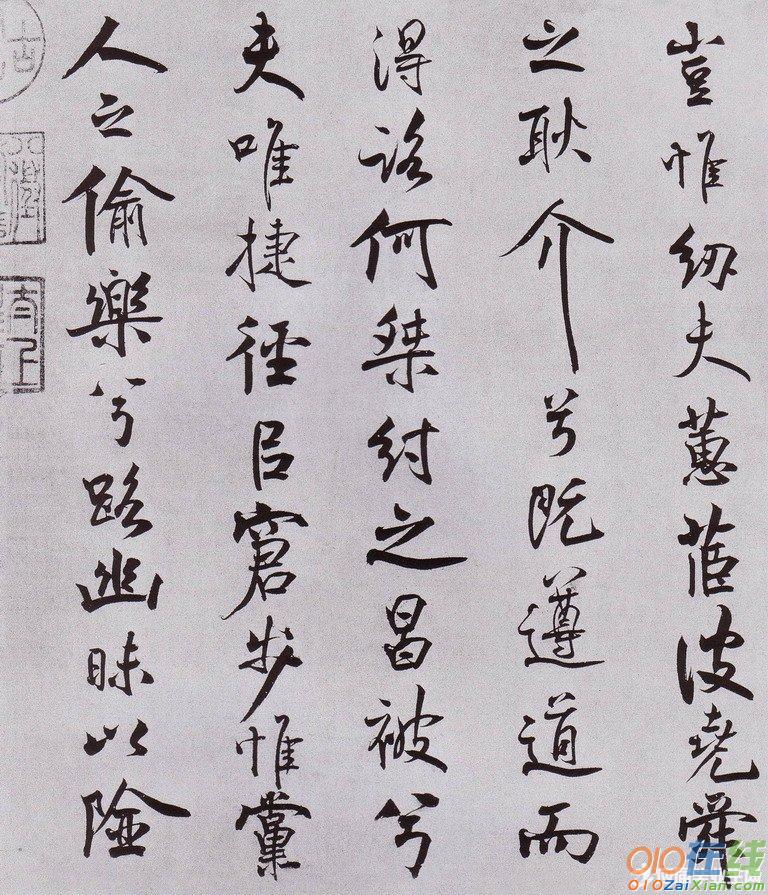 豈惟紉夫蕙茝彼堯舜
之耿介兮既遵道而
得路何桀紂之昌被兮
夫唯捷徑㠯窘步惟黨
人之偷樂兮路幽昧以險
010在线
010ZaiXian.com